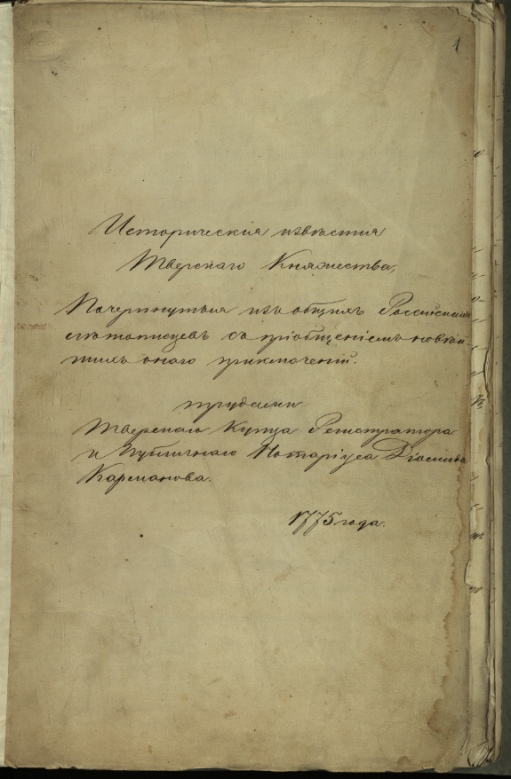 1
Историческія извѣстия
Тверскаго Княжества,
Почерпнутыя изъ общихъ Россійскихъ
лѣтописцевъ съ пріобщеніемъ новѣй-
шихъ онаго приключеній.
трудами
Тверскаго Купца Регистратора
и Публичнаго Нотаріуса Діомида
Карманова.
1775 года.